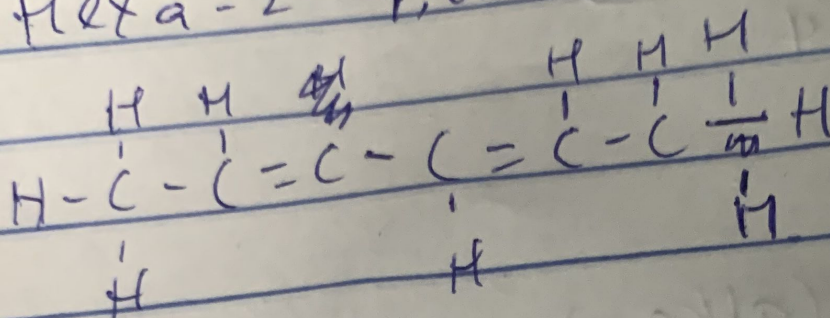 Hexa - 2
H H H H H
H - C - C = C - C = C - C - H
H H H